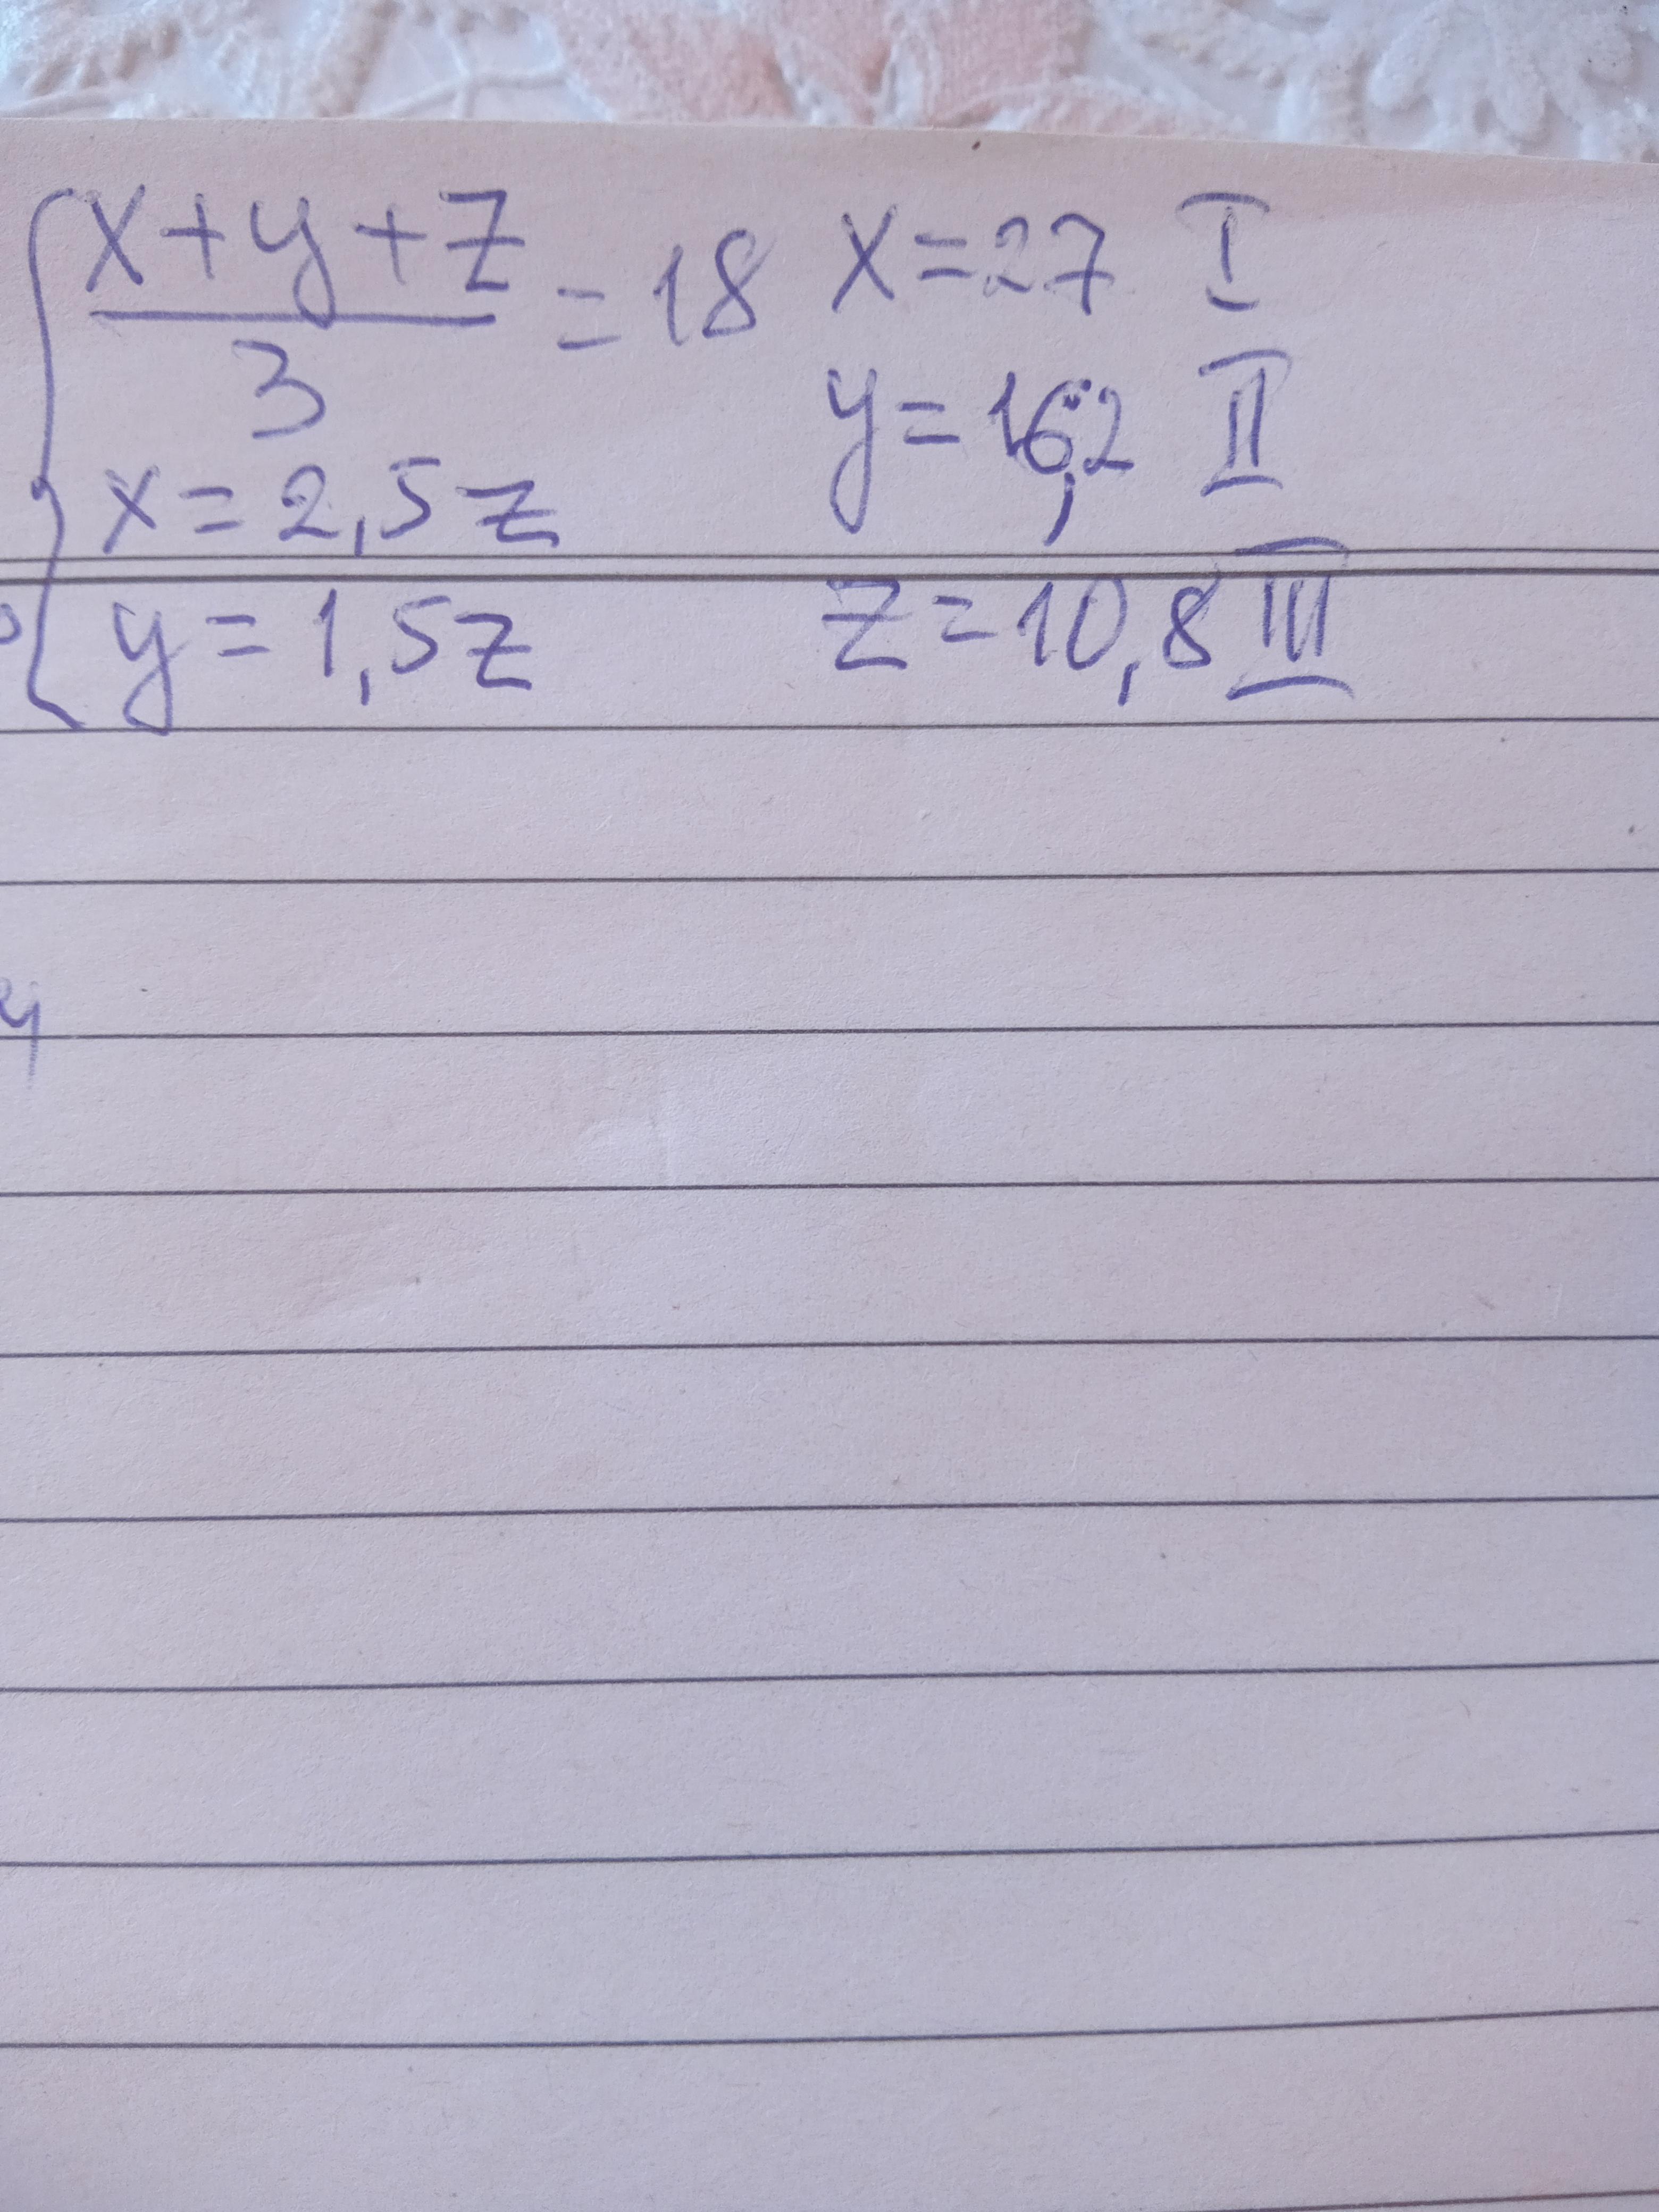 x+y+z
3
= 18
x = 2,5z
y = 1,5z
x = 27 I
y = 16,2 II
z = 10,8 III
ч